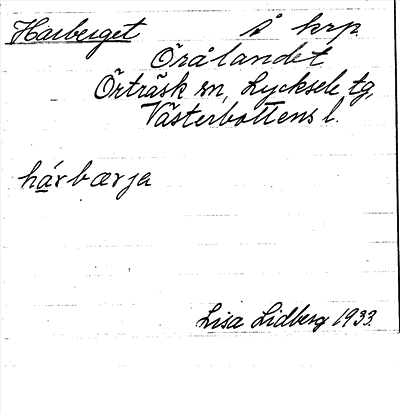 Harberget å krp
Örålandet
Örträsk sn, Lycksele tg,
Västerbottens l.
hárbærja
Lisa Lidberg 1933.